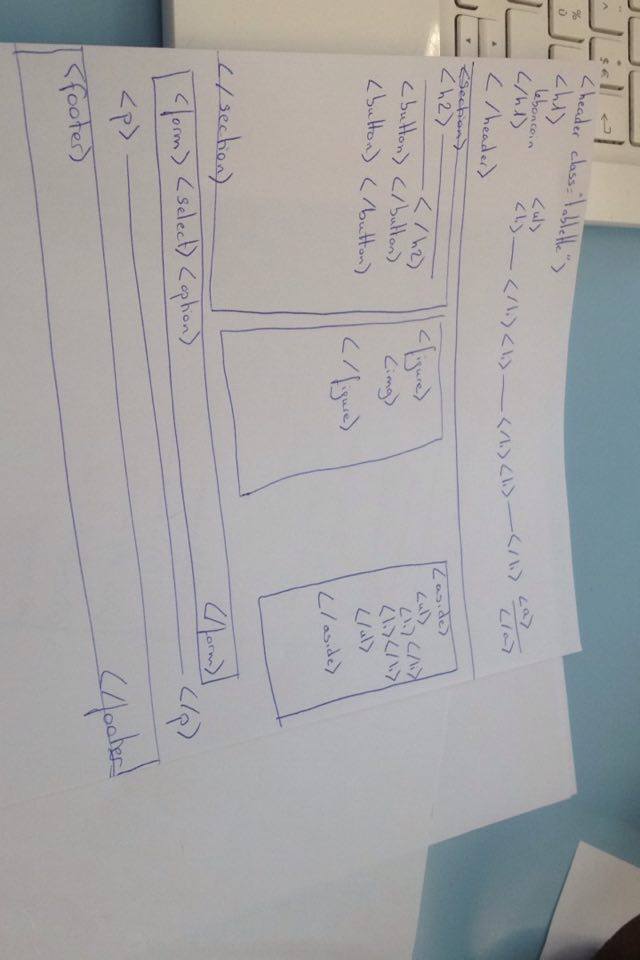 <header class="tablette">
<h1>
leboncoin
</h1>
<ul>
<li> </li> <li> </li> <li> </li> <a> </a>
</header>
<section>
<h2>
</h2>
<button> </button>
<button> </button>
<figure>
<img>
</figure>
<aside>
<ul>
<li> </li>
<li> </li>
</ul>
</aside>
</section>
<form> <select> <option> </form>
<p> </p>
<footer> </footer>